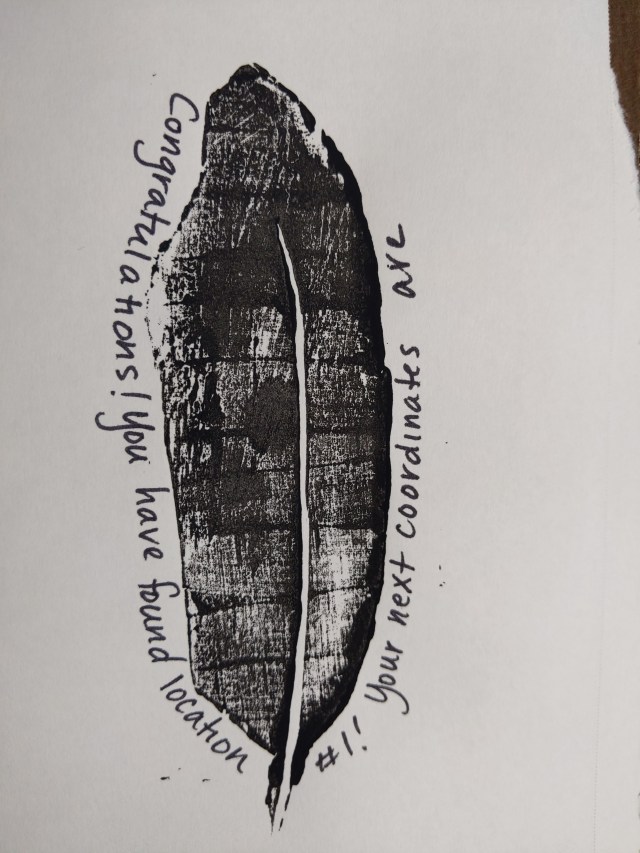 Congratulations! You have found location
#1! Your next coordinates are